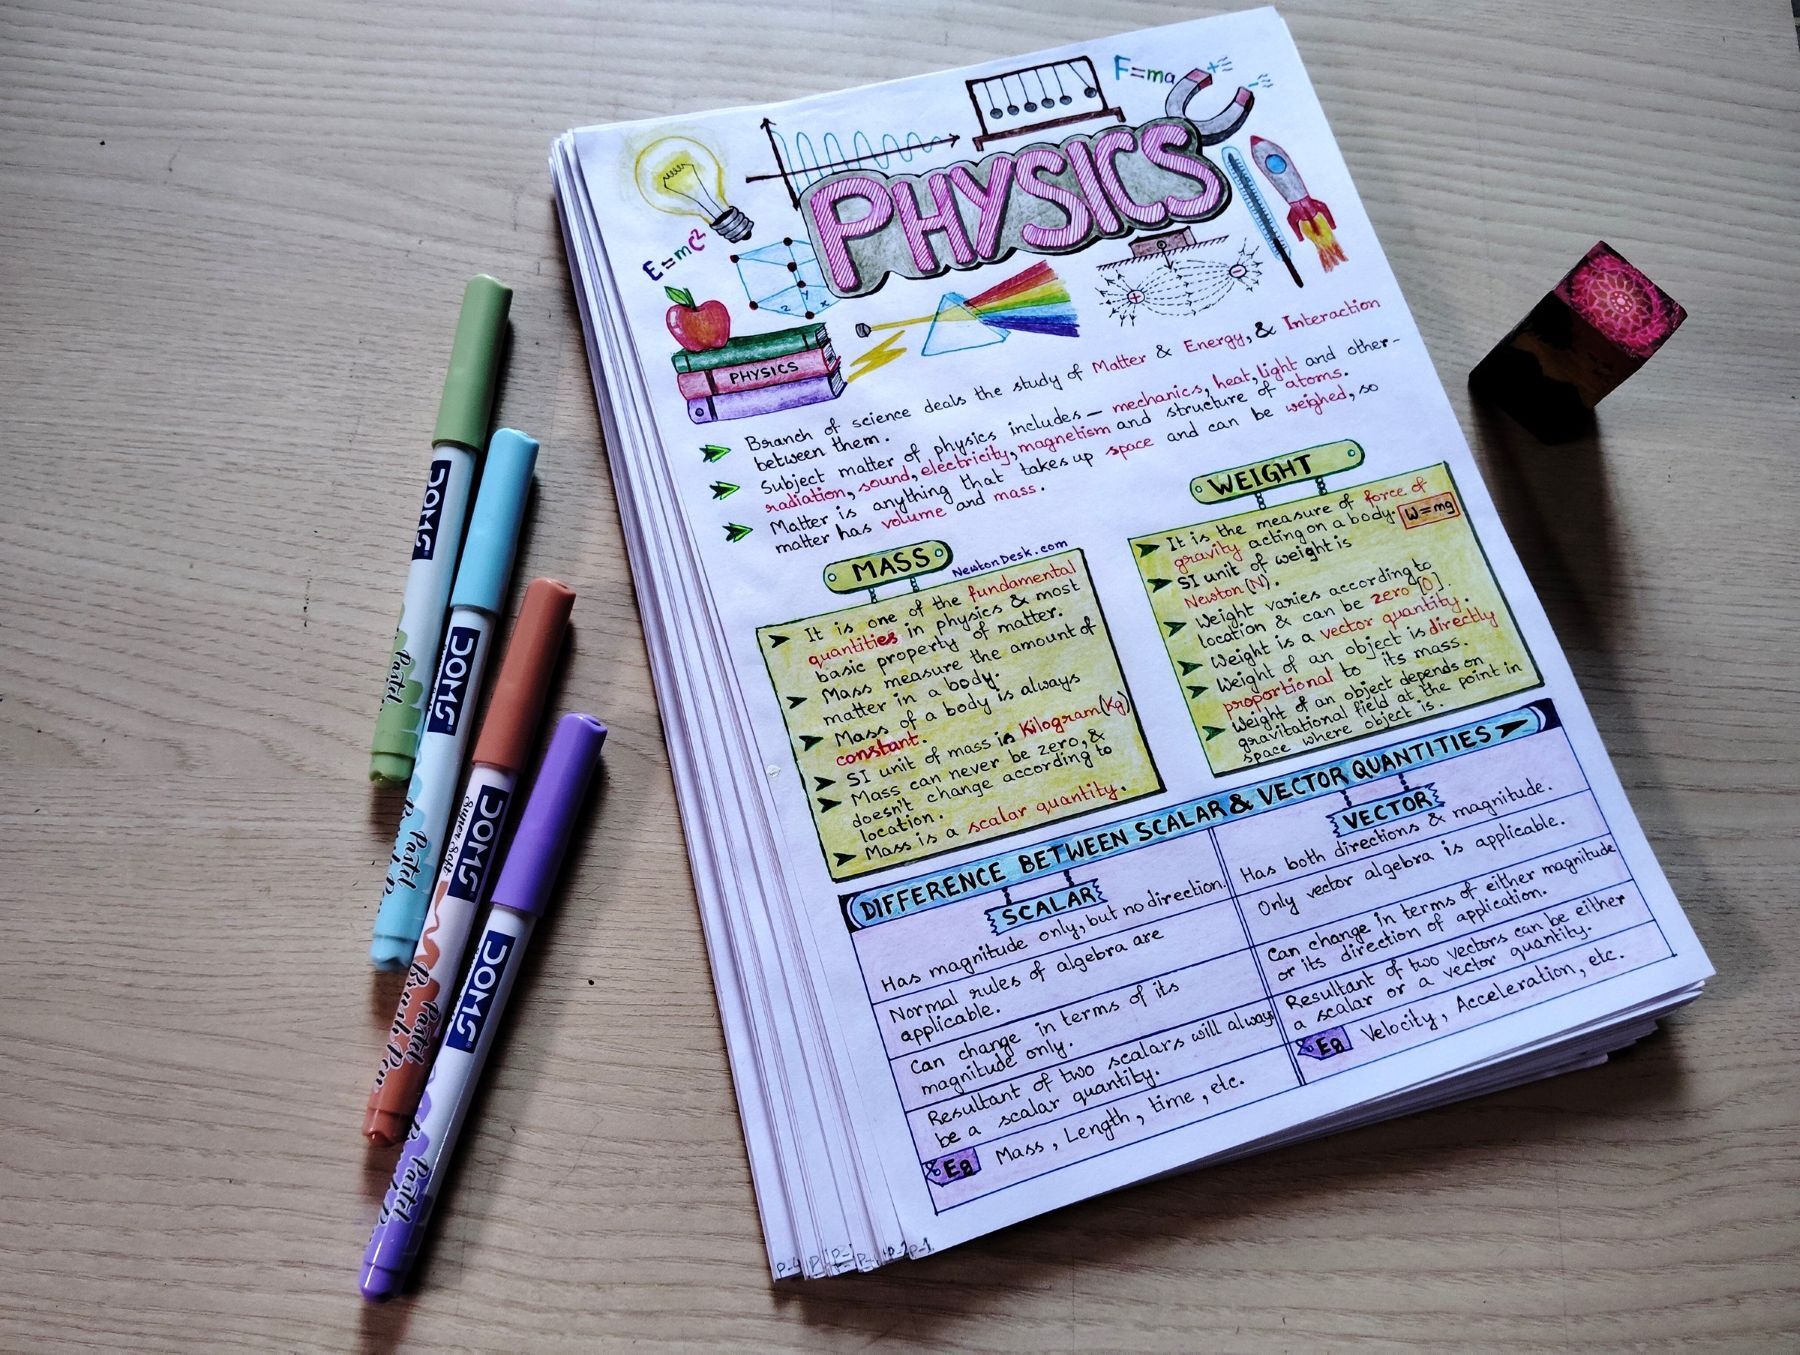 F=ma
PHYSICS
E=mc²
PHYSICS
Branch of science deals the study of Matter & Energy, & Interaction
between them.
Subject matter of physics includes — mechanics, heat, light and other-
radiation, sound, electricity, magnetism and structure of atoms.
Matter is anything that takes up space and can be weighed, so
matter has volume and mass.
MASS
NewtonDesk.com
It is one of the fundamental
quantities in physics & most
basic property of matter.
Mass measure the amount of
matter in a body.
Mass of a body is always
constant.
SI unit of mass is Kilogram(Kg)
Mass can never be zero, &
doesn't change according to
location.
Mass is a scalar quantity.
WEIGHT
It is the measure of force of
gravity acting on a body. W=mg
SI unit of weight is
Newton (N).
Weight varies according to
location & can be zero [0].
Weight is a vector quantity.
Weight of an object is directly
proportional to its mass.
Weight of an object depends on
gravitational field at the point in
space where object is.
DIFFERENCE BETWEEN SCALAR & VECTOR QUANTITIES
SCALAR
Has magnitude only, but no direction.
Normal rules of algebra are
applicable.
Can change in terms of its
magnitude only.
Resultant of two scalars will always
be a scalar quantity.
Eg Mass, Length, time, etc.
VECTOR
Has both directions & magnitude.
Only vector algebra is applicable.
Can change in terms of either magnitude
or its direction of application.
Resultant of two vectors can be either
a scalar or a vector quantity.
Eg Velocity, Acceleration, etc.
P-4
P-2 P-1
DOMS
Pastel
DOMS
Pastel
DOMS
Super Soft
Pastel
Brush Pen
DOMS
Pastel